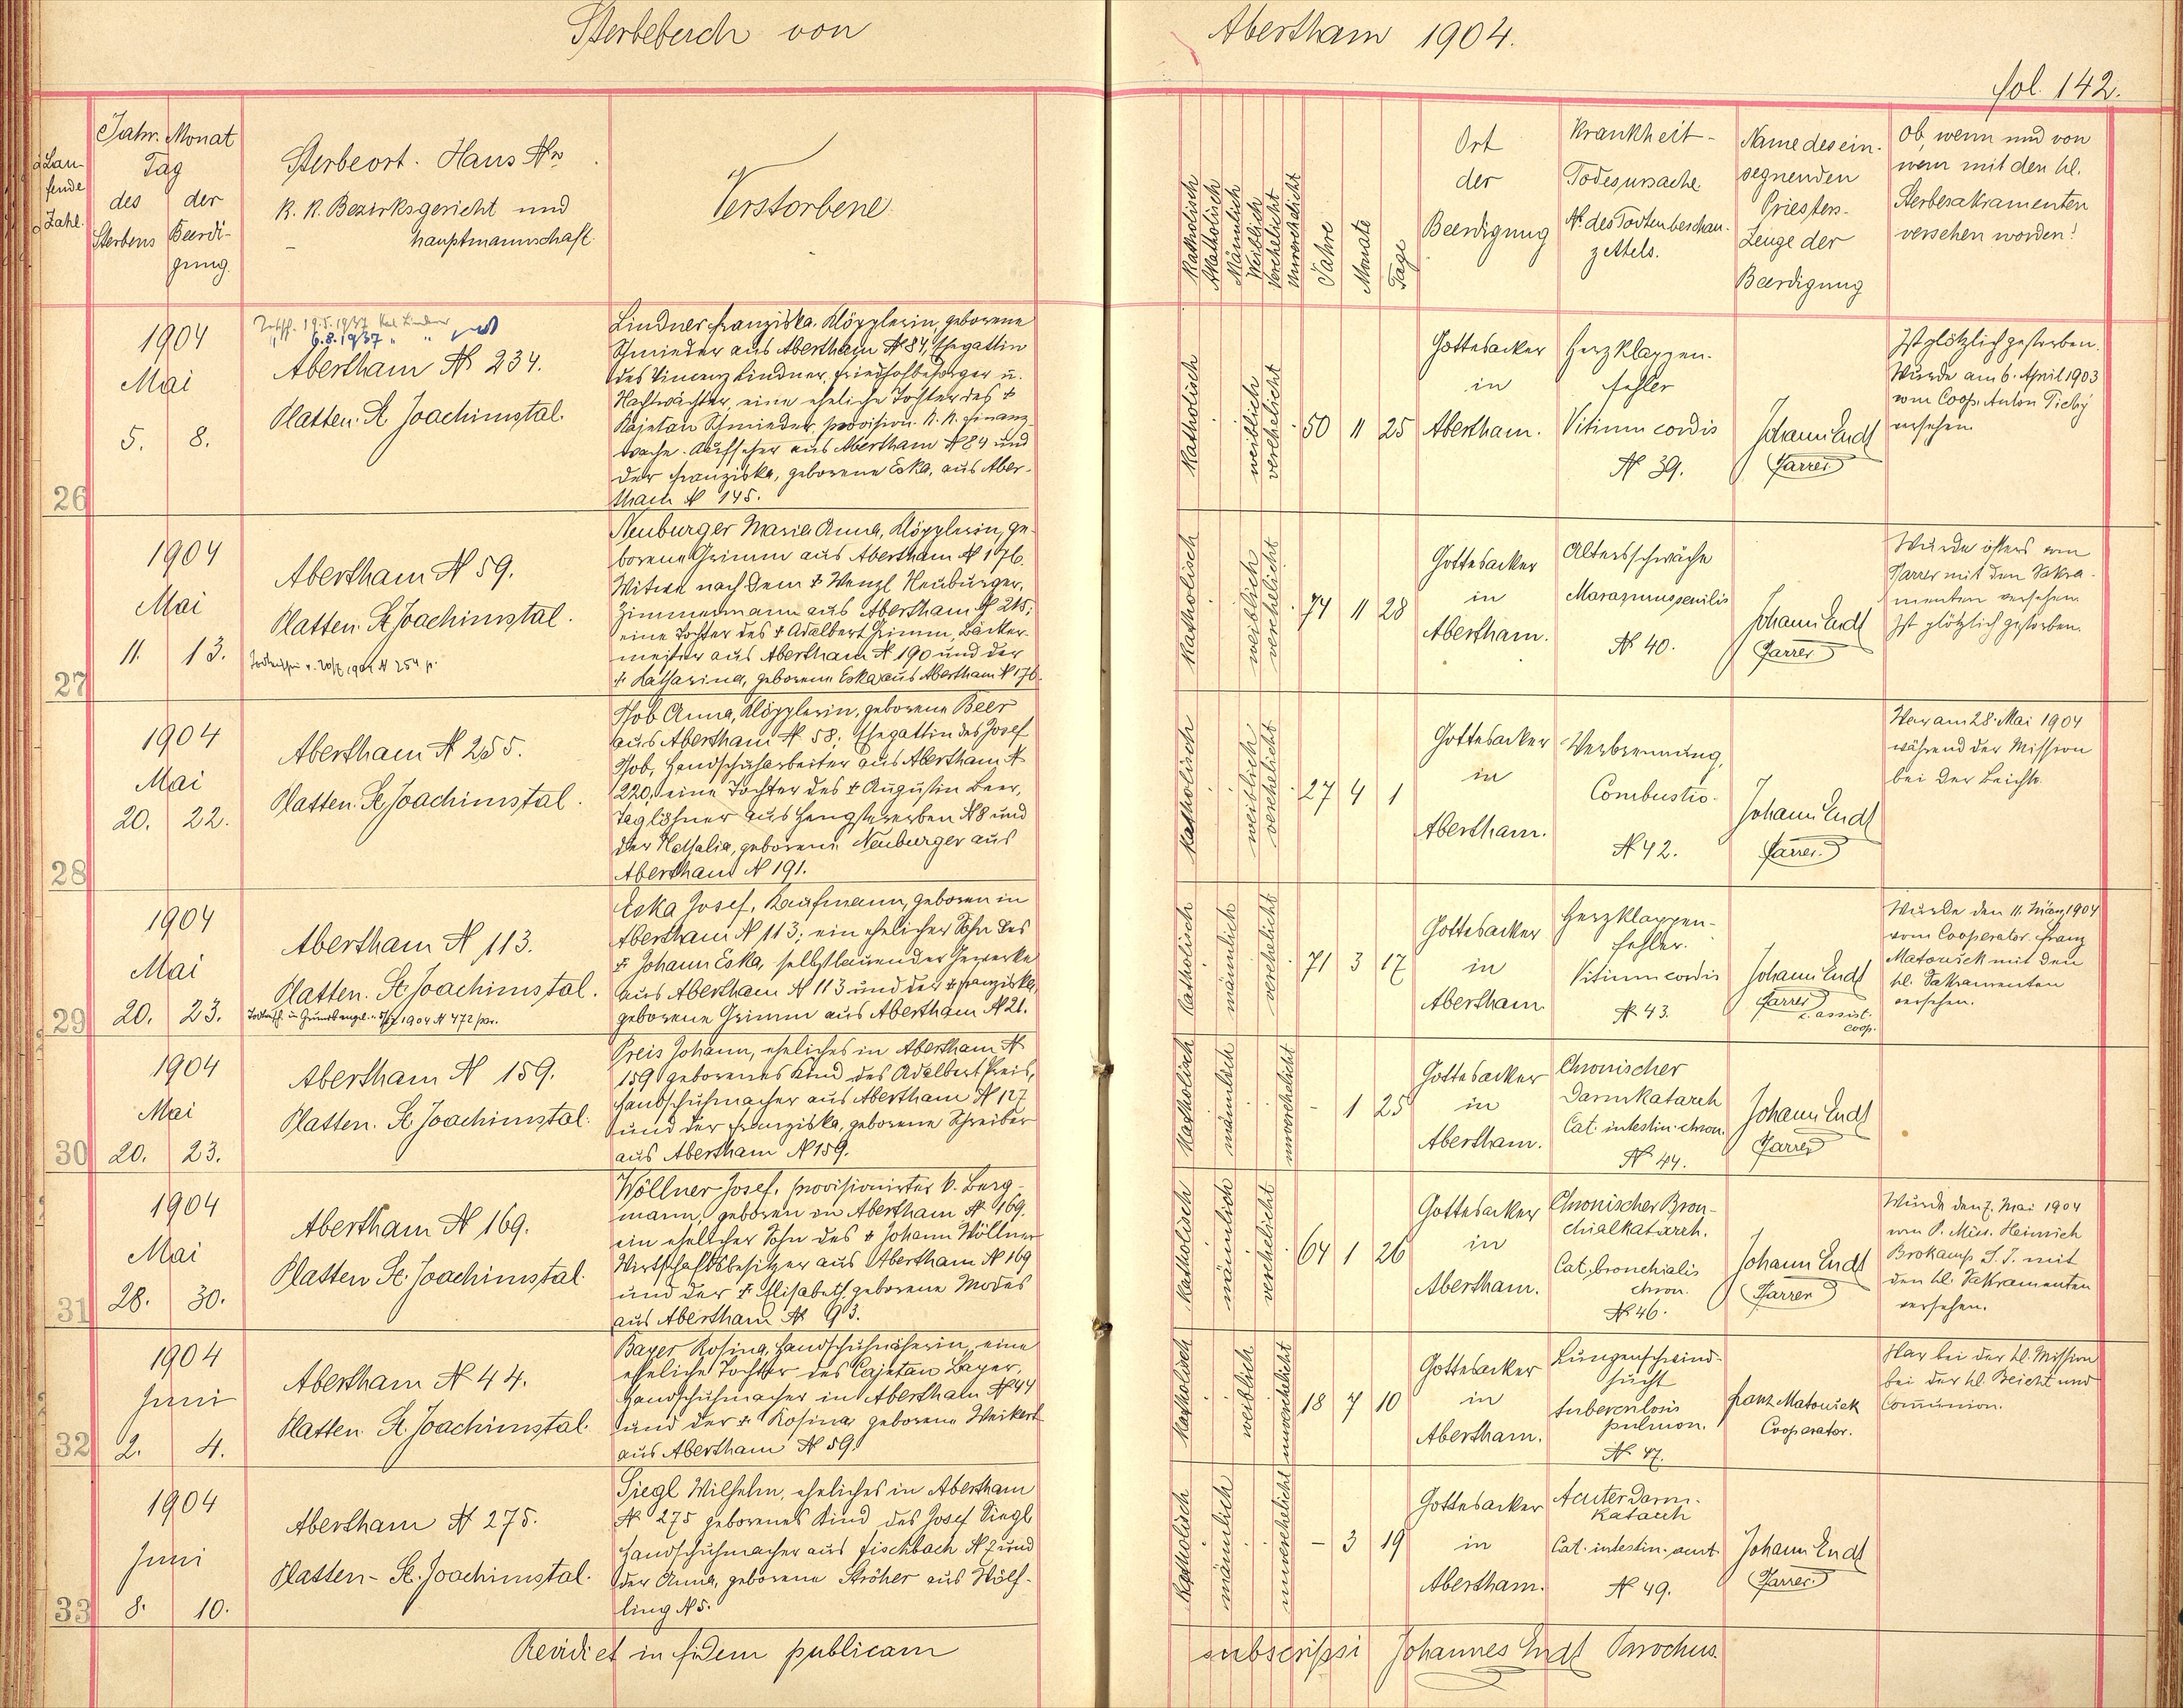 Sterbebuch von Abertham 1904.
fol. 142.
Laufende Zahl.
Jahr. Monat
Tag
des der
Sterbens Beerdi-
gung.
Sterbeort. Haus Nro
K. K. Bezirksgericht und
hauptmannschaft.
Verstorbene.
Katholisch
Akatholisch
Männlich
Weiblich
Verehelicht
Unverehelicht
Jahre
Monate
Tage
Ort
der
Beerdigung
Krankheit-
Todesursache
No. des Todtenbeschau-
zettels.
Name des ein-
segnenden
Priesters-
Zeuge der
Beerdigung
Ob, wenn und von
wem mit den hl.
Sterbesakramenten
versehen worden?
26
1904
Mai
5. 8.
19.5.1937
6.8.1937 " "
Abertham No 234.
Platten. St Joachimstal.
Lindner Franziska, Klöpplerin, geborene
Schmieder aus Abertham No 84, Ehegattin
des Vinzenz Lindner, Friedhofbesorger u.
Nachtwächter, eine eheliche Tochter des †
Kajetan Schmieder, provision. K. K. Finanz-
wache-Aufseher aus Abertham No 84 und
der Franziska, geborene Eska, aus Aber-
tham No 145.
Katholisch
weiblich
verehelicht
50 11 25
Gottesacker
in
Abertham.
Herzklappen-
fehler
Vitium cordis
No 39.
Johann Endt
Pfarrer
Ist plötzlich gestorben.
Wurde am 6. April 1903
vom Coop. Anton Tichý
versehen.
27
1904
Mai
11. 13.
Abertham No 59.
Platten. St Joachimstal.
Neuburger Maria Anna, Klöpplerin, ge-
borene Grimm aus Abertham No 176.
Witwe nach dem † Wenzl Neuburger,
Zimmermann aus Abertham No 215;
eine Tochter des † Adalbert Grimm, Bäcker-
meister aus Abertham No 190 und der
† Katharina, geborene Eska aus Abertham No 176.
Katholisch
weiblich
verehelicht
74 11 28
Gottesacker
in
Abertham.
Altersschwäche
Marasmus senilis
No 40.
Johann Endt
Pfarrer
Wurde öfters vom
Pfarrer mit den Sakra-
menten versehen.
Ist plötzlich gestorben.
28
1904
Mai
20. 22.
Abertham No 255.
Platten. St Joachimstal.
Hob Anna, Klöpplerin, geborene Beer
aus Abertham No 58; Ehegattin des Josef
Hob, Handschuharbeiter aus Abertham No
220, eine Tochter des † Augustin Beer,
Taglöhner aus Hengstererben No 8 und
der Nathalia, geborene Neuburger aus
Abertham No 191.
Katholisch
weiblich
verehelicht
27 4 1
Gottesacker
in
Abertham.
Verbrennung,
Combustio.
No 42.
Johann Endt
Pfarrer.
War am 28. Mai 1904
während der Mission
bei der Beichte.
29
1904
Mai
20. 23.
Abertham No 113.
Platten. St Joachimstal.
Eska Josef, Kaufmann, geboren in
Abertham No 113; ein ehelicher Sohn des
† Johann Eska, selbstbauender Gewerke
aus Abertham No 113 und der † Franziska,
geborene Grimm aus Abertham No 21.
Katholisch
männlich
verehelicht
71 3 17
Gottesacker
in
Abertham
Herzklappen-
fehler.
Vitium cordis
No 43.
Johann Endt
Pfarrer
c. assist.
coop.
Wurde den 11. März 1904
vom Cooperator Franz
Matouschek mit den
hl. Sakramenten
versehen.
30
1904
Mai
20. 23.
Abertham No 159.
Platten. St Joachimstal.
Preis Johann, eheliches in Abertham No
159 geborenes Kind des Adalbert Preis,
Handschuhmacher aus Abertham No 127
und der Franziska, geborene Schreiber
aus Abertham No 159.
Katholisch
männlich
unverehelicht
- 1 25
Gottesacker
in
Abertham.
Chronischer
Darmkatarrh
Cat. intestin. chron.
No 44.
Johann Endt
Pfarrer
31
1904
Mai
28. 30.
Abertham No 169.
Platten St. Joachimstal.
Wöllner Josef, provisionirter k. Berg-
mann, geboren in Abertham No 169.
ein ehelicher Sohn des † Johann Wöllner
Wirtschaftsbesitzer aus Abertham No 169
und der † Elisabeth geborene Modes
aus Abertham No 93.
Katholisch
männlich
verehelicht
64 1 26
Gottesacker
in
Abertham.
Chronischer Bron-
chialkatarrh.
Cat. bronchialis
chron.
No 46.
Johann Endt
Pfarrer
Wurde den 7. Mai 1904
vom P. Miss. Heinrich
Brokamp S. J. mit
den hl. Sakramenten
versehen.
32
1904
Juni
2. 4.
Abertham No 44.
Platten. St. Joachimstal.
Bayer Rosina, Handschuhnäherin, eine
eheliche Tochter des Cajetan Bayer,
Handschuhmacher in Abertham No 44
und der † Rosina geborene Weikert
aus Abertham No 59.
Katholisch
weiblich
unverehelicht
18 7 10
Gottesacker
in
Abertham.
Lungenschwind-
sucht
tuberculosis
pulmon.
No 47.
Franz Matouschek
Cooperator.
War bei der hl. Mission
bei der hl. Beicht und
Communion.
33
1904
Juni
8. 10.
Abertham No 275.
Platten - St. Joachimstal.
Siegl Wilhelm, eheliches in Abertham
No 275 geborenes Kind des Josef Siegl
Handschuhmacher aus Fischbach No 7 und
der Anna, geborene Ströher aus Wölf-
ling No 5.
Katholisch
männlich
unverehelicht
- 3 19
Gottesacker
in
Abertham.
Acuter Darm-
katarrh
Cat. intestin. acut.
No 49.
Johann Endt
Pfarrer.
Revidi et in fidem publicam subscripsi Johannes Endt Parochus.